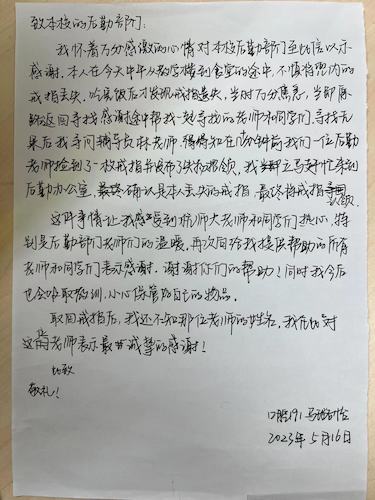 致本校的后勤部门：
我怀着万分感激的心情对本校后勤部门至此信以示
感谢。本人在今天中午从教学楼到食堂的途中，不慎将兜内的
戒指丢失。吃完饭后才发现戒指遗失，当时万分焦急，当即原
路返回寻找，感谢途中帮我一起寻找的老师和同学们，寻找无
果后我寻问辅导员林老师，得知在10分钟前我们一位后勤
老师捡到了一枚戒指并发布了失物招领，我立马来到
后勤办公室，最终确认是本人丢失的戒指，最终将戒指
认领
这件事情让我感受到杭师大老师和同学们热心，特
别是后勤部门老师们的温暖，再次向给我提供帮助的所有
老师和同学们表示感谢。谢谢你们的帮助！同时我今后
也会吸取教训，小心保管好自己的物品。
取回戒指后，我还不知那位老师的姓名，我在此对
这位老师表示最诚挚的感谢！
此致
敬礼！
口腔191
2023年5月16日